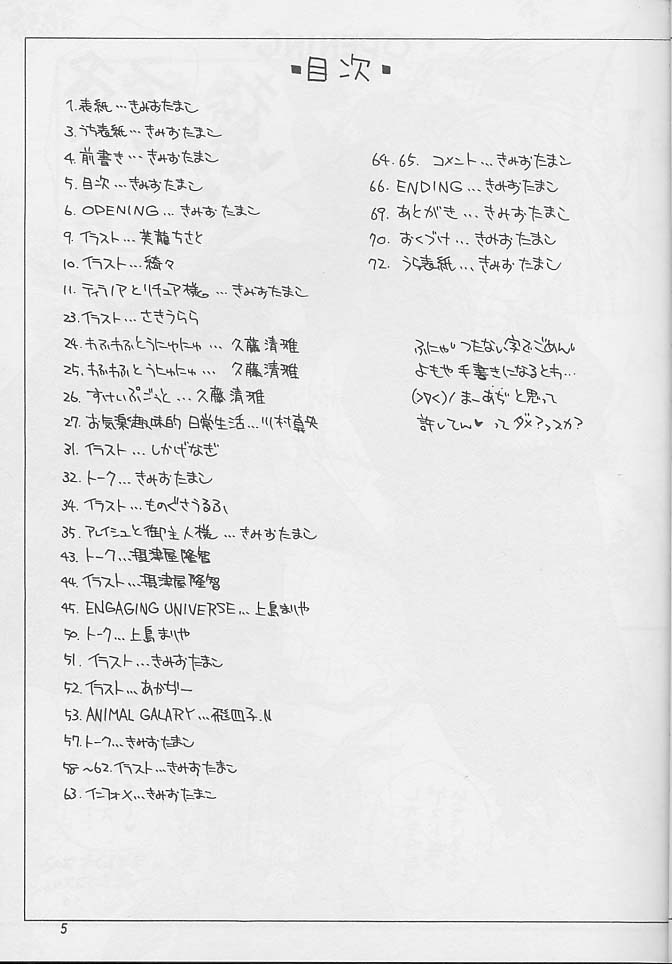 ▪目次▪
1. 表紙…きみおたまこ
3. うら表紙…きみおたまこ
4. 前書き…きみおたまこ
5. 目次…きみおたまこ
6. OPENING…きみおたまこ
9. イラスト…芙龍ちさと
10. イラスト…綺々
11. ティラノアとリチュア様。…きみおたまこ
23. イラスト…さきうらら
24. わふわふとうにゅにゅ…久藤清雅
25. わふわふとうにゅにゅ…久藤清雅
26. すけいぷごっと…久藤清雅
27. お気楽趣味的日常生活…川村真央
31. イラスト…しかげなぎ
32. トーク…きみおたまこ
34. イラスト…ものぐさうるふ
35. アレイシュと御主人様…きみおたまこ
43. トーク…摂津屋隆智
44. イラスト…摂津屋隆智
45. ENGAGING UNIVERSE…上島まりや
50. トーク…上島まりや
51. イラスト…きみおたまこ
52. イラスト…あかぢー
53. ANIMAL GALARY…飛四子.N
57. トーク…きみおたまこ
58〜62. イラスト…きみおたまこ
63. インフォメ…きみおたまこ
64.65. コメント…きみおたまこ
66. ENDING…きみおたまこ
69. あとがき…きみおたまこ
70. おくづけ…きみおたまこ
72. うら表紙…きみおたまこ
ふにゃ つたない字でごめん
よもや手書きになるとわ…
まーあぢと思って
許してん♥ってダメ?っスカ?
5